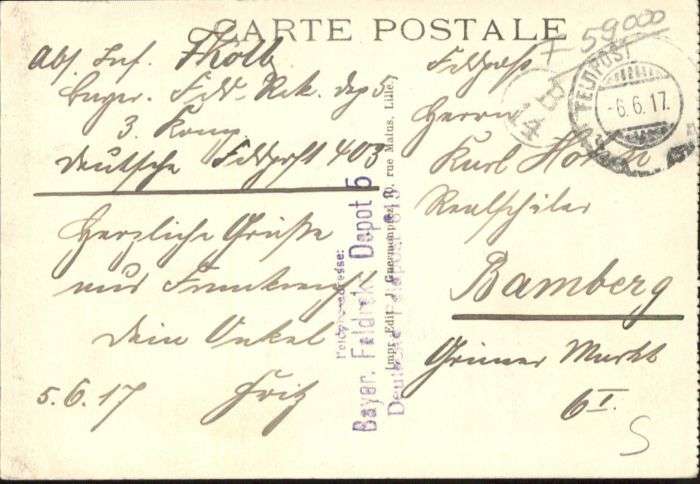 CARTE POSTALE
Abs. Inf. F Kolb
bayer. Feld-Rek. Dep 5
3. Komp.
Deutsche Feldpost 403
Herzliche Grüße
aus Frankreich
Dein Onkel
5.6.17 Fritz
Feldpostadresse:
Bayer. Feldrek. Depot 5
Deutsche Feldpost
Impr. Edit. J. rue Malus, Lille.
+ 59000
FELDPOST
-6.6.17.
Feldpost
Herrn
Karl
Realschüler
Bamberg
Grüner Markt
6 I.
S